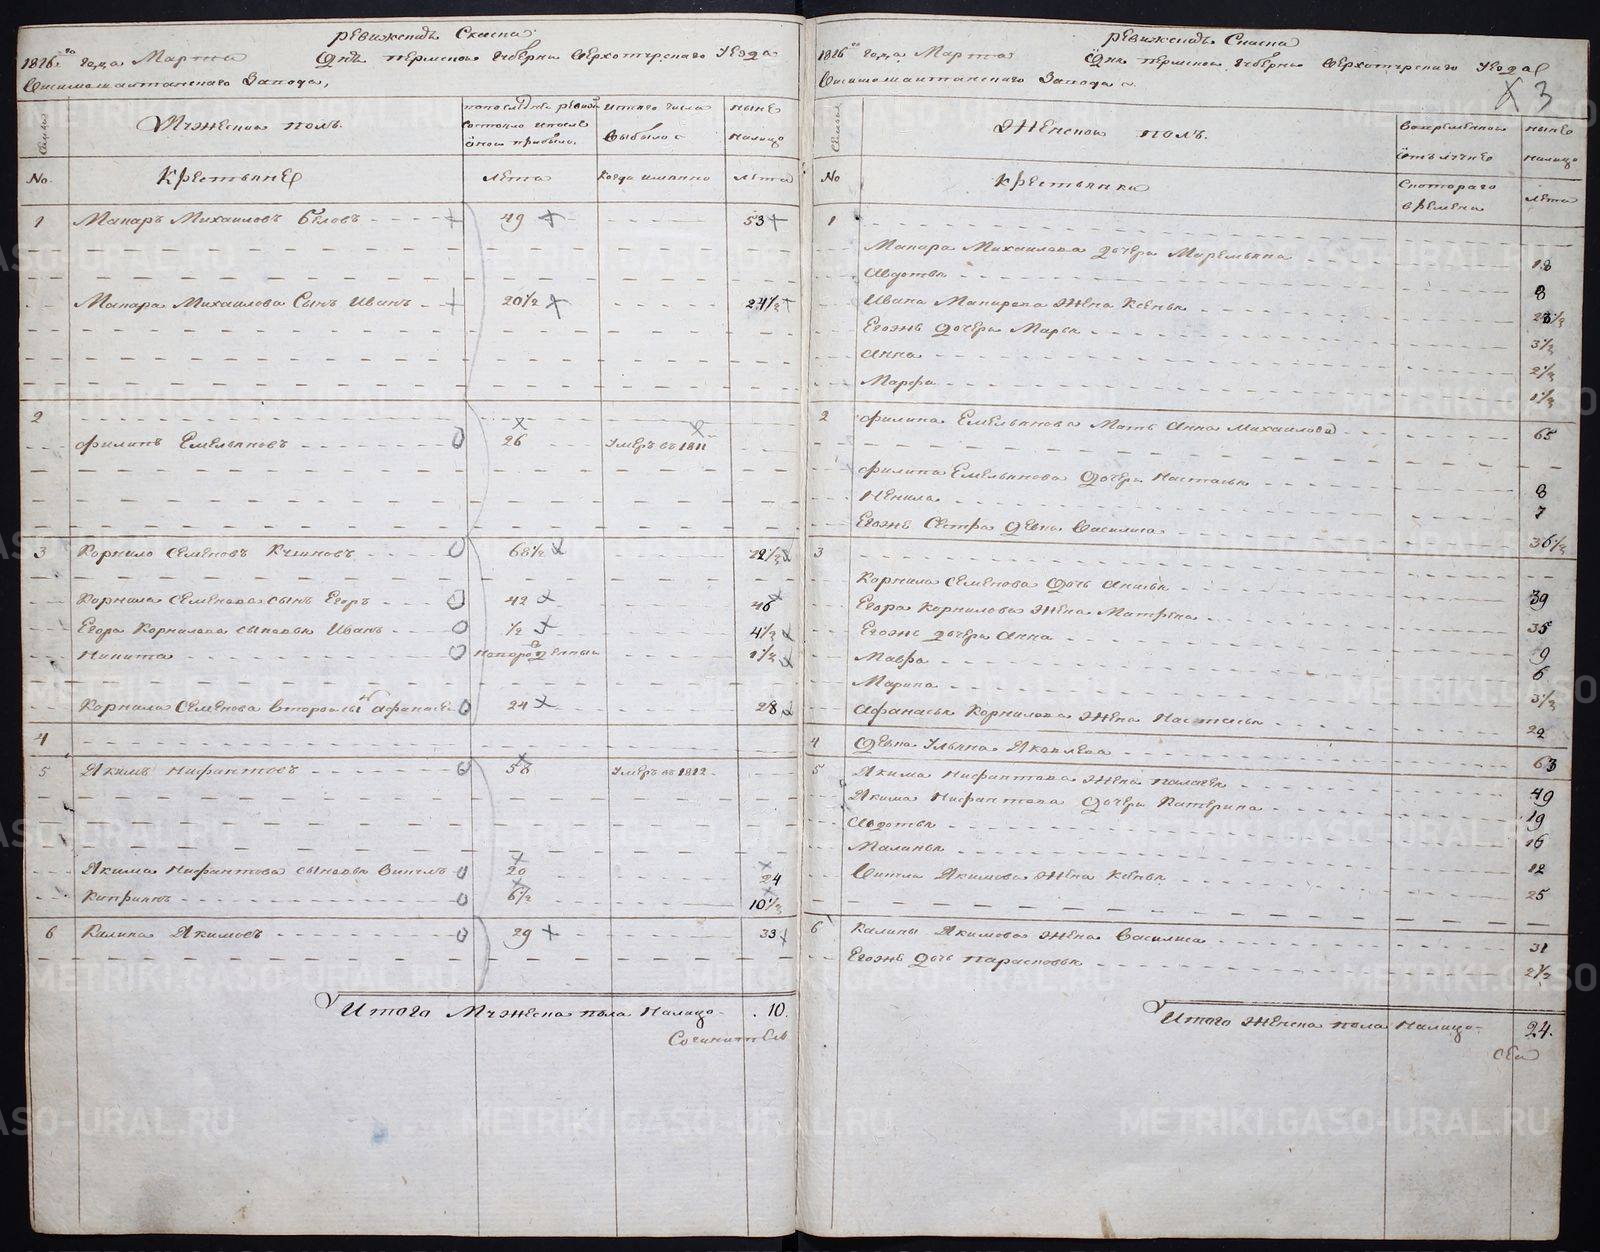 Ревижская Сказка
1816го года Марта Дня Пермской Губернии Верхотурского Уезда
Висимошайтанского Завода,
Семьи
Мужеской полъ.
По последней ревизии состояло и после оной прибыло.
Изтого числа выбыло
Ныне налицо
No.
Крестьяне
Лета
Когда имянно
Лета
1 Макаръ Михаиловъ Беловъ 49 53
Макара Михаилова Сынъ Иванъ 20½ 24½
2
Филипъ Емельяновъ 26 Умеръ въ 1811
3 Корнило Семеновъ 68½
Корнила Семенова сынъ Егоръ 42 46
Егора Корнилова сыновья Иванъ ½ 4½
Никита новорожденный 1½
Корнила Семенова второй сынъ Афанасей 24 28
4
5 Якимъ Нифантовъ 56 Умеръ въ 1812
Якима Нифантова сыновья 20 24
6½ 10½
6 Калина Якимовъ 29 33
Итого Мужеска пола Налицо 10.
Сочинителъ
Ревижская Сказка
1816го года Марта Дня Пермской Губернии Верхотурского Уезда
Висимошайтанского Завода
3
Семьи
Женской полъ.
Во временной отлучке
Ныне налицо
No
Крестьянки
С которого времени
Лета
1
Макара Михаилова дочери Маремьяна 18
Авдотья 8
Ивана Макарова жена Ксенья
Егожъ дочери Марья 3½
Анна 2½
Марфа 1½
2 Филипа Емельянова Мать Анна Михаилова 65
Филипа Емельянова дочери Настасья 8
Ненила 7
Егожъ Сестра девка Василиса 36½
3
Корнила Семенова дочь 39
Егора Корнилова жена Матрена 35
Егожъ дочери Анна 9
Мавра 6
Марина 3½
Афанасья Корнилова жена Настасья 22
4 Девка Ульяна Яковлева 63
5 Якима Нифантова жена Палагея 49
Якима Нифантова дочери Катерина 19
Авдотья 16
Маланья 12
Якимова жена Ксенья 25
6 Калины Якимова жена Василиса 31
Егожъ дочь Парасковья 2½
Итого женска пола Налицо 24.
сей
METRIKI.GASO-URAL.RU